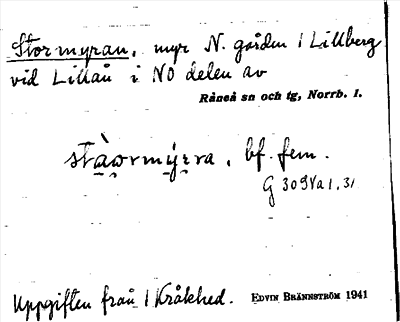 Stormyran, myr N. gården 1 Lillberg
vid Lillån i NO delen av
Råneå sn och tg, Norrb. l.
stàormýrra, bf. fem.
G 3094a1, 31
Uppgiften från 1 Kråkhed. EDVIN BRÄNNSTRÖM 1941